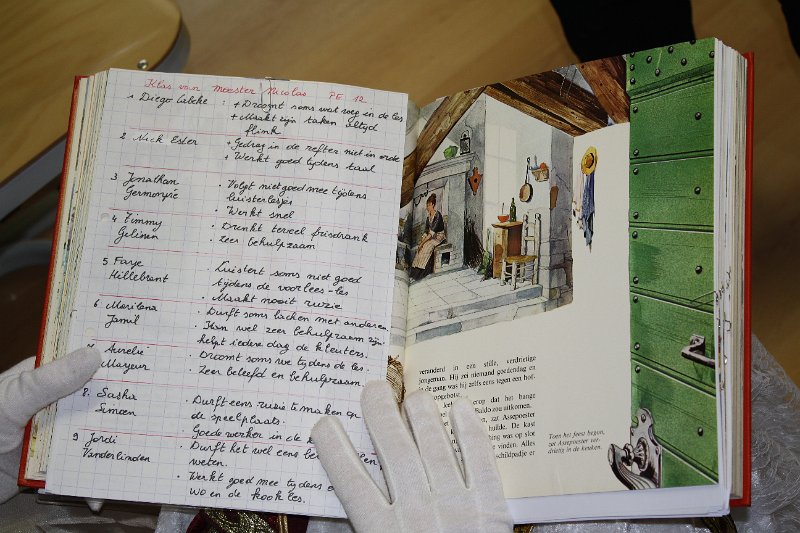 Klas van meester Nicolas P.E. 12
1 Diego Caleke : + Droomt soms wat weg in de les
+ Maakt zijn taken altijd
flink
2 Nick Ester + Gedrag in de refter niet in orde
+ Werkt goed tijdens taal
3 Jonathan · Volgt niet goed mee tijdens
Germonpré luisterlesjes
· Werkt snel
4 Timmy · Drinkt teveel frisdrank
Gelinen · Zeer behulpzaam
5 Faye · Luistert soms niet goed
Hillebrant tijdens de voorlees-les
· Maakt nooit ruzie
6 Marilena · Durft soms lachen met anderen
Jamil · Kan wel zeer behulpzaam zijn
helpt iedere dag de kleuters.
Aurelie · Droomt soms tijdens de les
Mayeur · Zeer beleefd en behulpzaam
8. Sasha · Durft eens ruzie te maken op
Simoen de speelplaats.
· Goede werker in de
9 Jordi · Durft het wel eens be
Vanderlinden weten.
· Werkt goed mee tijdens
WO en de kookles.
veranderd in een stille, verdrietige
jongeman. Hij zei niemand goedendag en
in de gang was hij zelfs eens tegen een hof-
dat het bange
Baldo zou uitkomen.
zat Assepoester
huilde. De kast
was op slot
te vinden. Alles
schildpadje er
Toen het feest begon,
zat Assepoester ver-
drietig in de keuken.